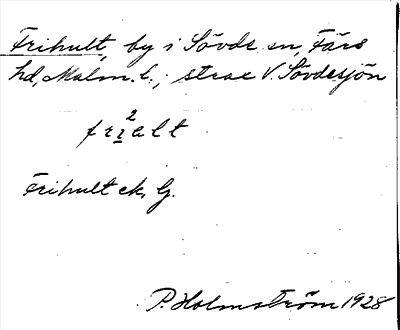 Frihult, by i Sövde sn, Färs
hd, Malm. l.; strax V. Sövdesjön
frɪ²alt
Frihult ek, G.
P. Holmström 1928